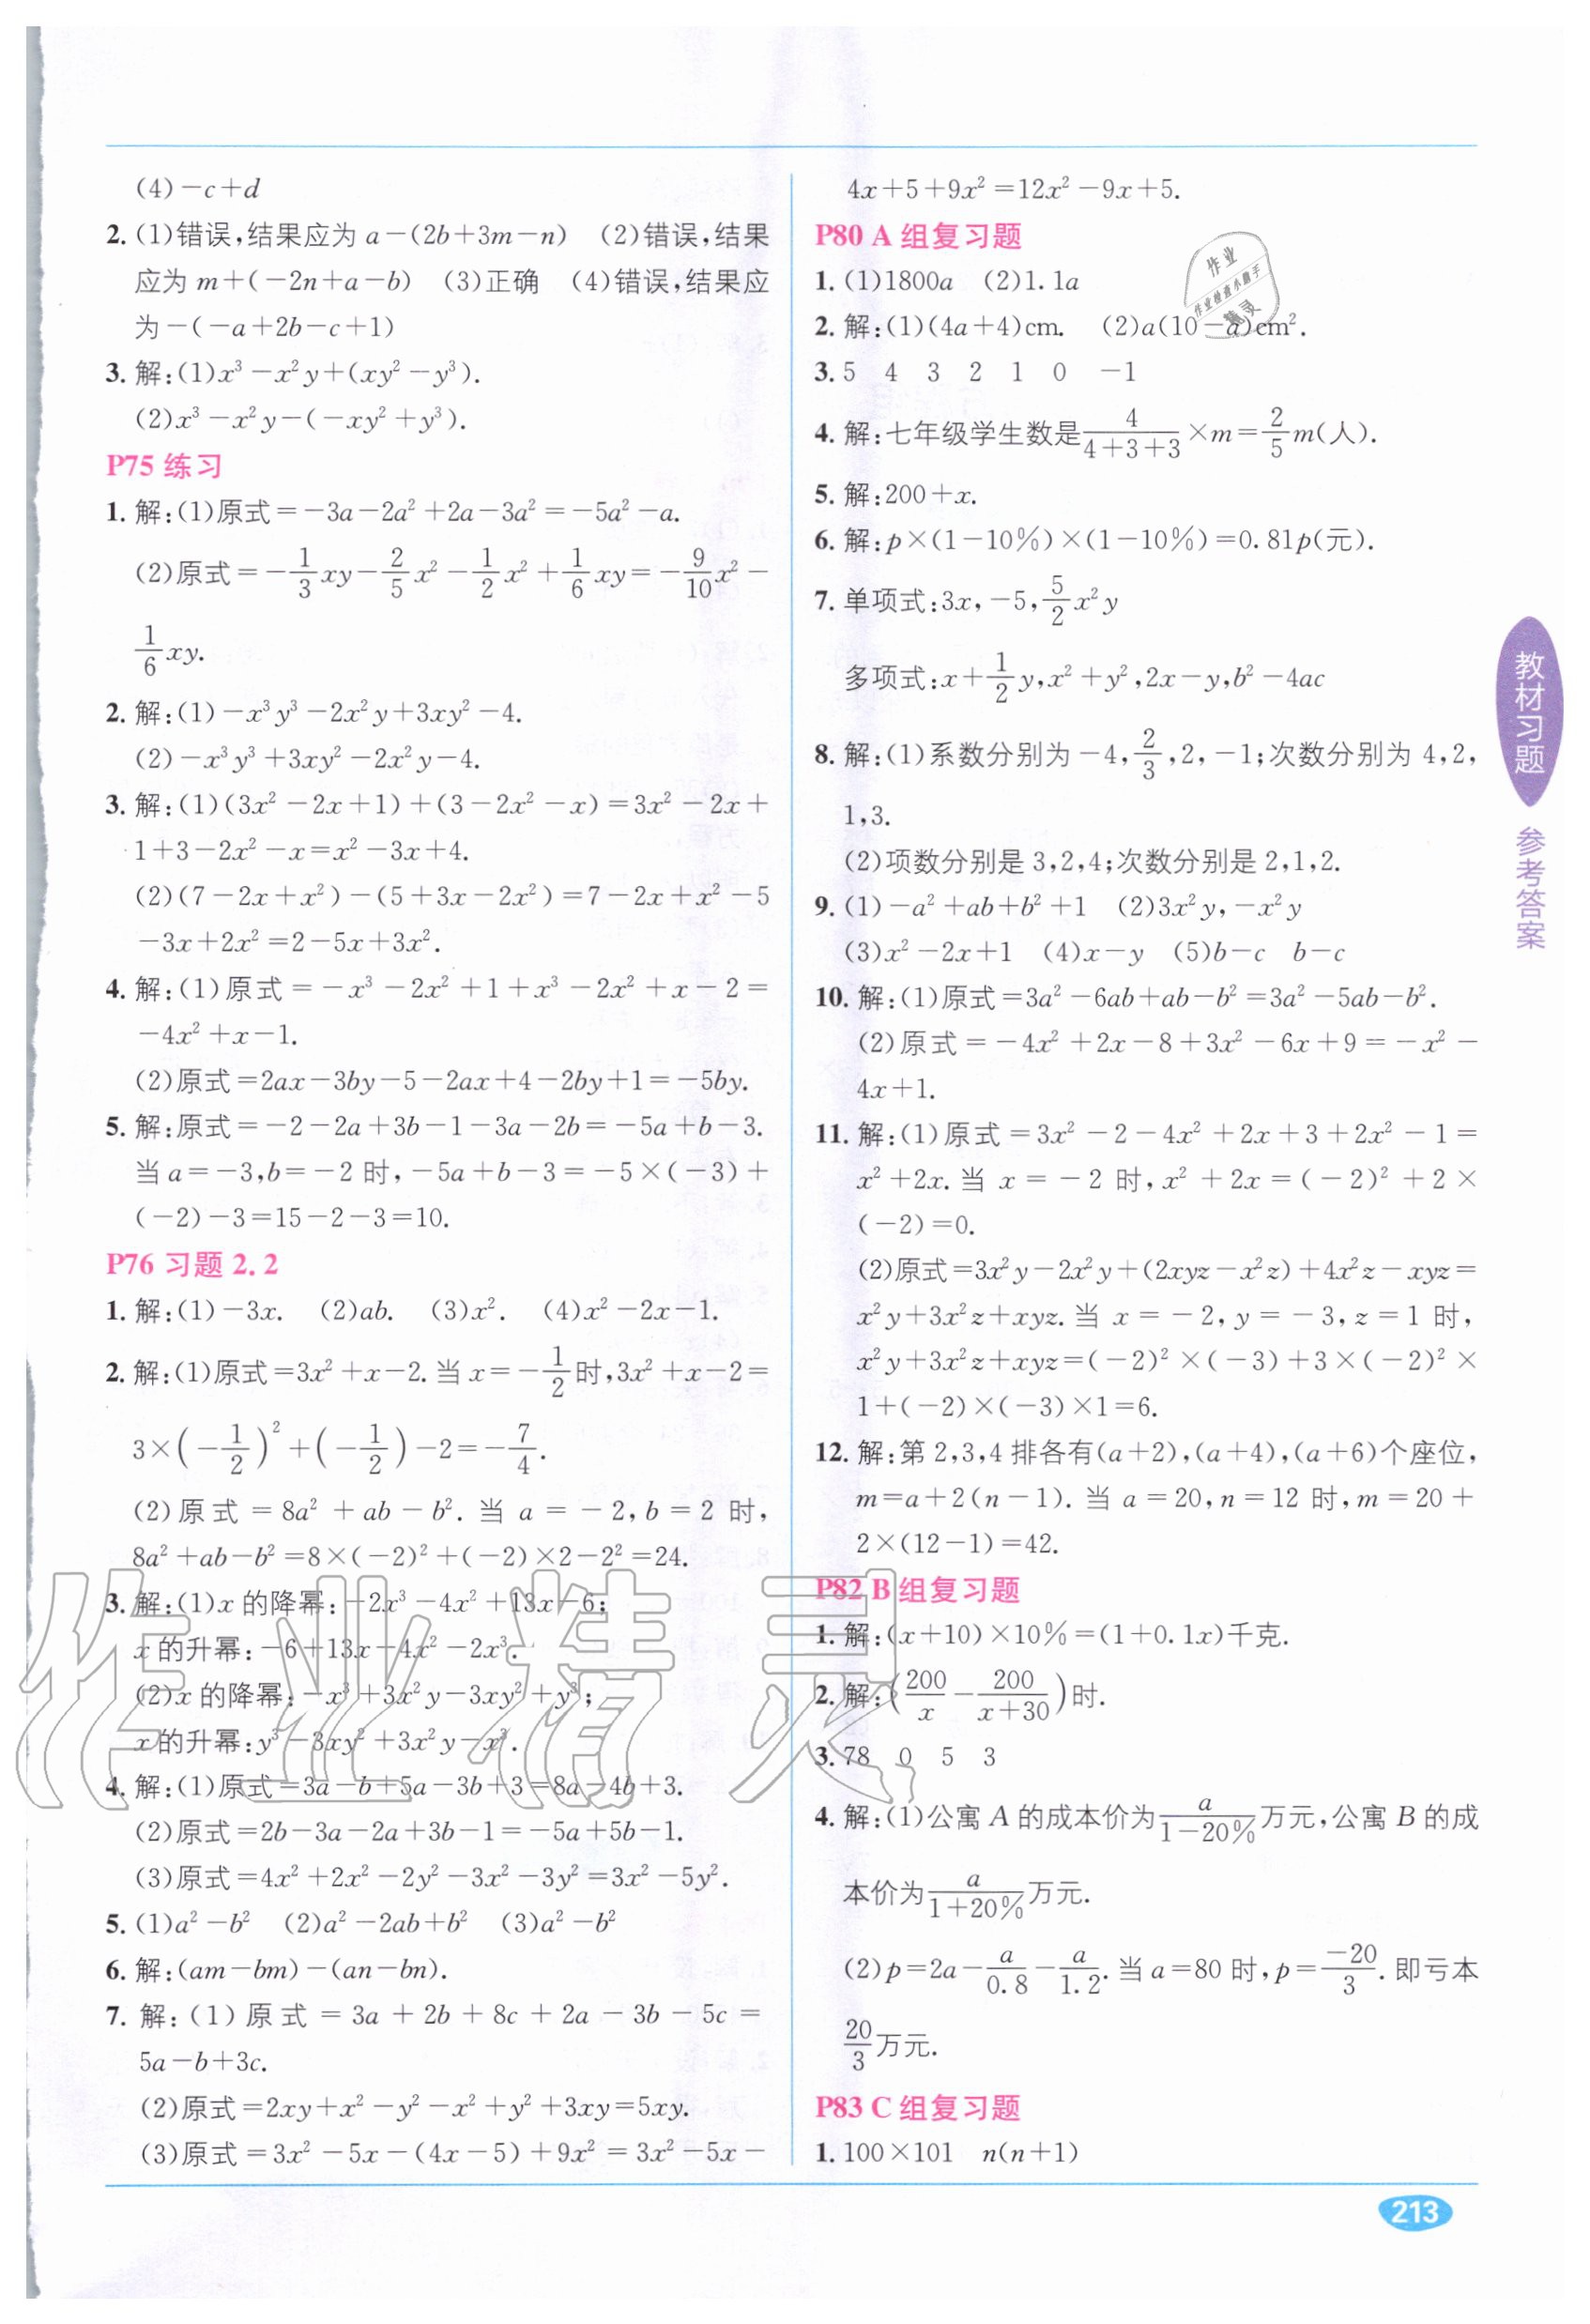 (4)-c+d
2. (1)错误,结果应为 a-(2b+3m-n) (2)错误,结果
应为 m+(-2n+a-b) (3)正确 (4)错误,结果应
为-(-a+2b-c+1)
3. 解:(1)x³-x²y+(xy²-y³).
(2)x³-x²y-(-xy²+y³).
P75 练习
1. 解:(1)原式=-3a-2a²+2a-3a²=-5a²-a.
(2)原式=-1/3xy-2/5x²-1/2x²+1/6xy=-9/10x²-
1/6xy.
2. 解:(1)-x³y³-2x²y+3xy²-4.
(2)-x³y³+3xy²-2x²y-4.
3. 解:(1)(3x²-2x+1)+(3-2x²-x)=3x²-2x+
1+3-2x²-x=x²-3x+4.
(2)(7-2x+x²)-(5+3x-2x²)=7-2x+x²-5
-3x+2x²=2-5x+3x².
4. 解:(1)原式=-x³-2x²+1+x³-2x²+x-2=
-4x²+x-1.
(2)原式=2ax-3by-5-2ax+4-2by+1=-5by.
5. 解:原式=-2-2a+3b-1-3a-2b=-5a+b-3.
当 a=-3,b=-2 时,-5a+b-3=-5×(-3)+
(-2)-3=15-2-3=10.
P76 习题 2.2
1. 解:(1)-3x. (2)ab. (3)x². (4)x²-2x-1.
2. 解:(1)原式=3x²+x-2.当 x=-1/2时,3x²+x-2=
3×(-1/2)²+(-1/2)-2=-7/4.
(2)原式=8a²+ab-b².当 a=-2,b=2 时,
8a²+ab-b²=8×(-2)²+(-2)×2-2²=24.
3. 解:(1)x 的降幂:-2x³-4x²+13x-6;
x 的升幂:-6+13x-4x²-2x³.
(2)x 的降幂:-x³+3x²y-3xy²+y³;
x 的升幂:y³-3xy²+3x²y-x³.
4. 解:(1)原式=3a-b+5a-3b+3=8a-4b+3.
(2)原式=2b-3a-2a+3b-1=-5a+5b-1.
(3)原式=4x²+2x²-2y²-3x²-3y²=3x²-5y².
5. (1)a²-b² (2)a²-2ab+b² (3)a²-b²
6. 解:(am-bm)-(an-bn).
7. 解:(1)原式=3a+2b+8c+2a-3b-5c=
5a-b+3c.
(2)原式=2xy+x²-y²-x²+y²+3xy=5xy.
(3)原式=3x²-5x-(4x-5)+9x²=3x²-5x-
4x+5+9x²=12x²-9x+5.
P80 A 组复习题
1. (1)1800a (2)1.1a
2. 解:(1)(4a+4)cm. (2)a(10-a)cm².
3. 5 4 3 2 1 0 -1
4. 解:七年级学生数是4/(4+3+3)×m=2/5m(人).
5. 解:200+x.
6. 解:p×(1-10%)×(1-10%)=0.81p(元).
7. 单项式:3x,-5,5/2x²y
多项式:x+1/2y,x²+y²,2x-y,b²-4ac
8. 解:(1)系数分别为-4,2/3,2,-1;次数分别为 4,2,
1,3.
(2)项数分别是 3,2,4;次数分别是 2,1,2.
9. (1)-a²+ab+b²+1 (2)3x²y,-x²y
(3)x²-2x+1 (4)x-y (5)b-c b-c
10. 解:(1)原式=3a²-6ab+ab-b²=3a²-5ab-b².
(2)原式=-4x²+2x-8+3x²-6x+9=-x²-
4x+1.
11. 解:(1)原式=3x²-2-4x²+2x+3+2x²-1=
x²+2x.当 x=-2 时,x²+2x=(-2)²+2×
(-2)=0.
(2)原式=3x²y-2x²y+(2xyz-x²z)+4x²z-xyz=
x²y+3x²z+xyz.当 x=-2,y=-3,z=1 时,
x²y+3x²z+xyz=(-2)²×(-3)+3×(-2)²×
1+(-2)×(-3)×1=6.
12. 解:第 2,3,4 排各有(a+2),(a+4),(a+6)个座位,
m=a+2(n-1).当 a=20,n=12 时,m=20+
2×(12-1)=42.
P82 B 组复习题
1. 解:(x+10)×10%=(1+0.1x)千克.
2. 解:(200/x-200/(x+30))时.
3. 78 0 5 3
4. 解:(1)公寓 A 的成本价为a/(1-20%)万元,公寓 B 的成
本价为a/(1+20%)万元.
(2)p=2a-a/0.8-a/1.2.当 a=80 时,p=-20/3.即亏本
20/3万元.
P83 C 组复习题
1. 100×101 n(n+1)
教材习题
参考答案
213
作业
作业检查小助手
精灵
作业精灵